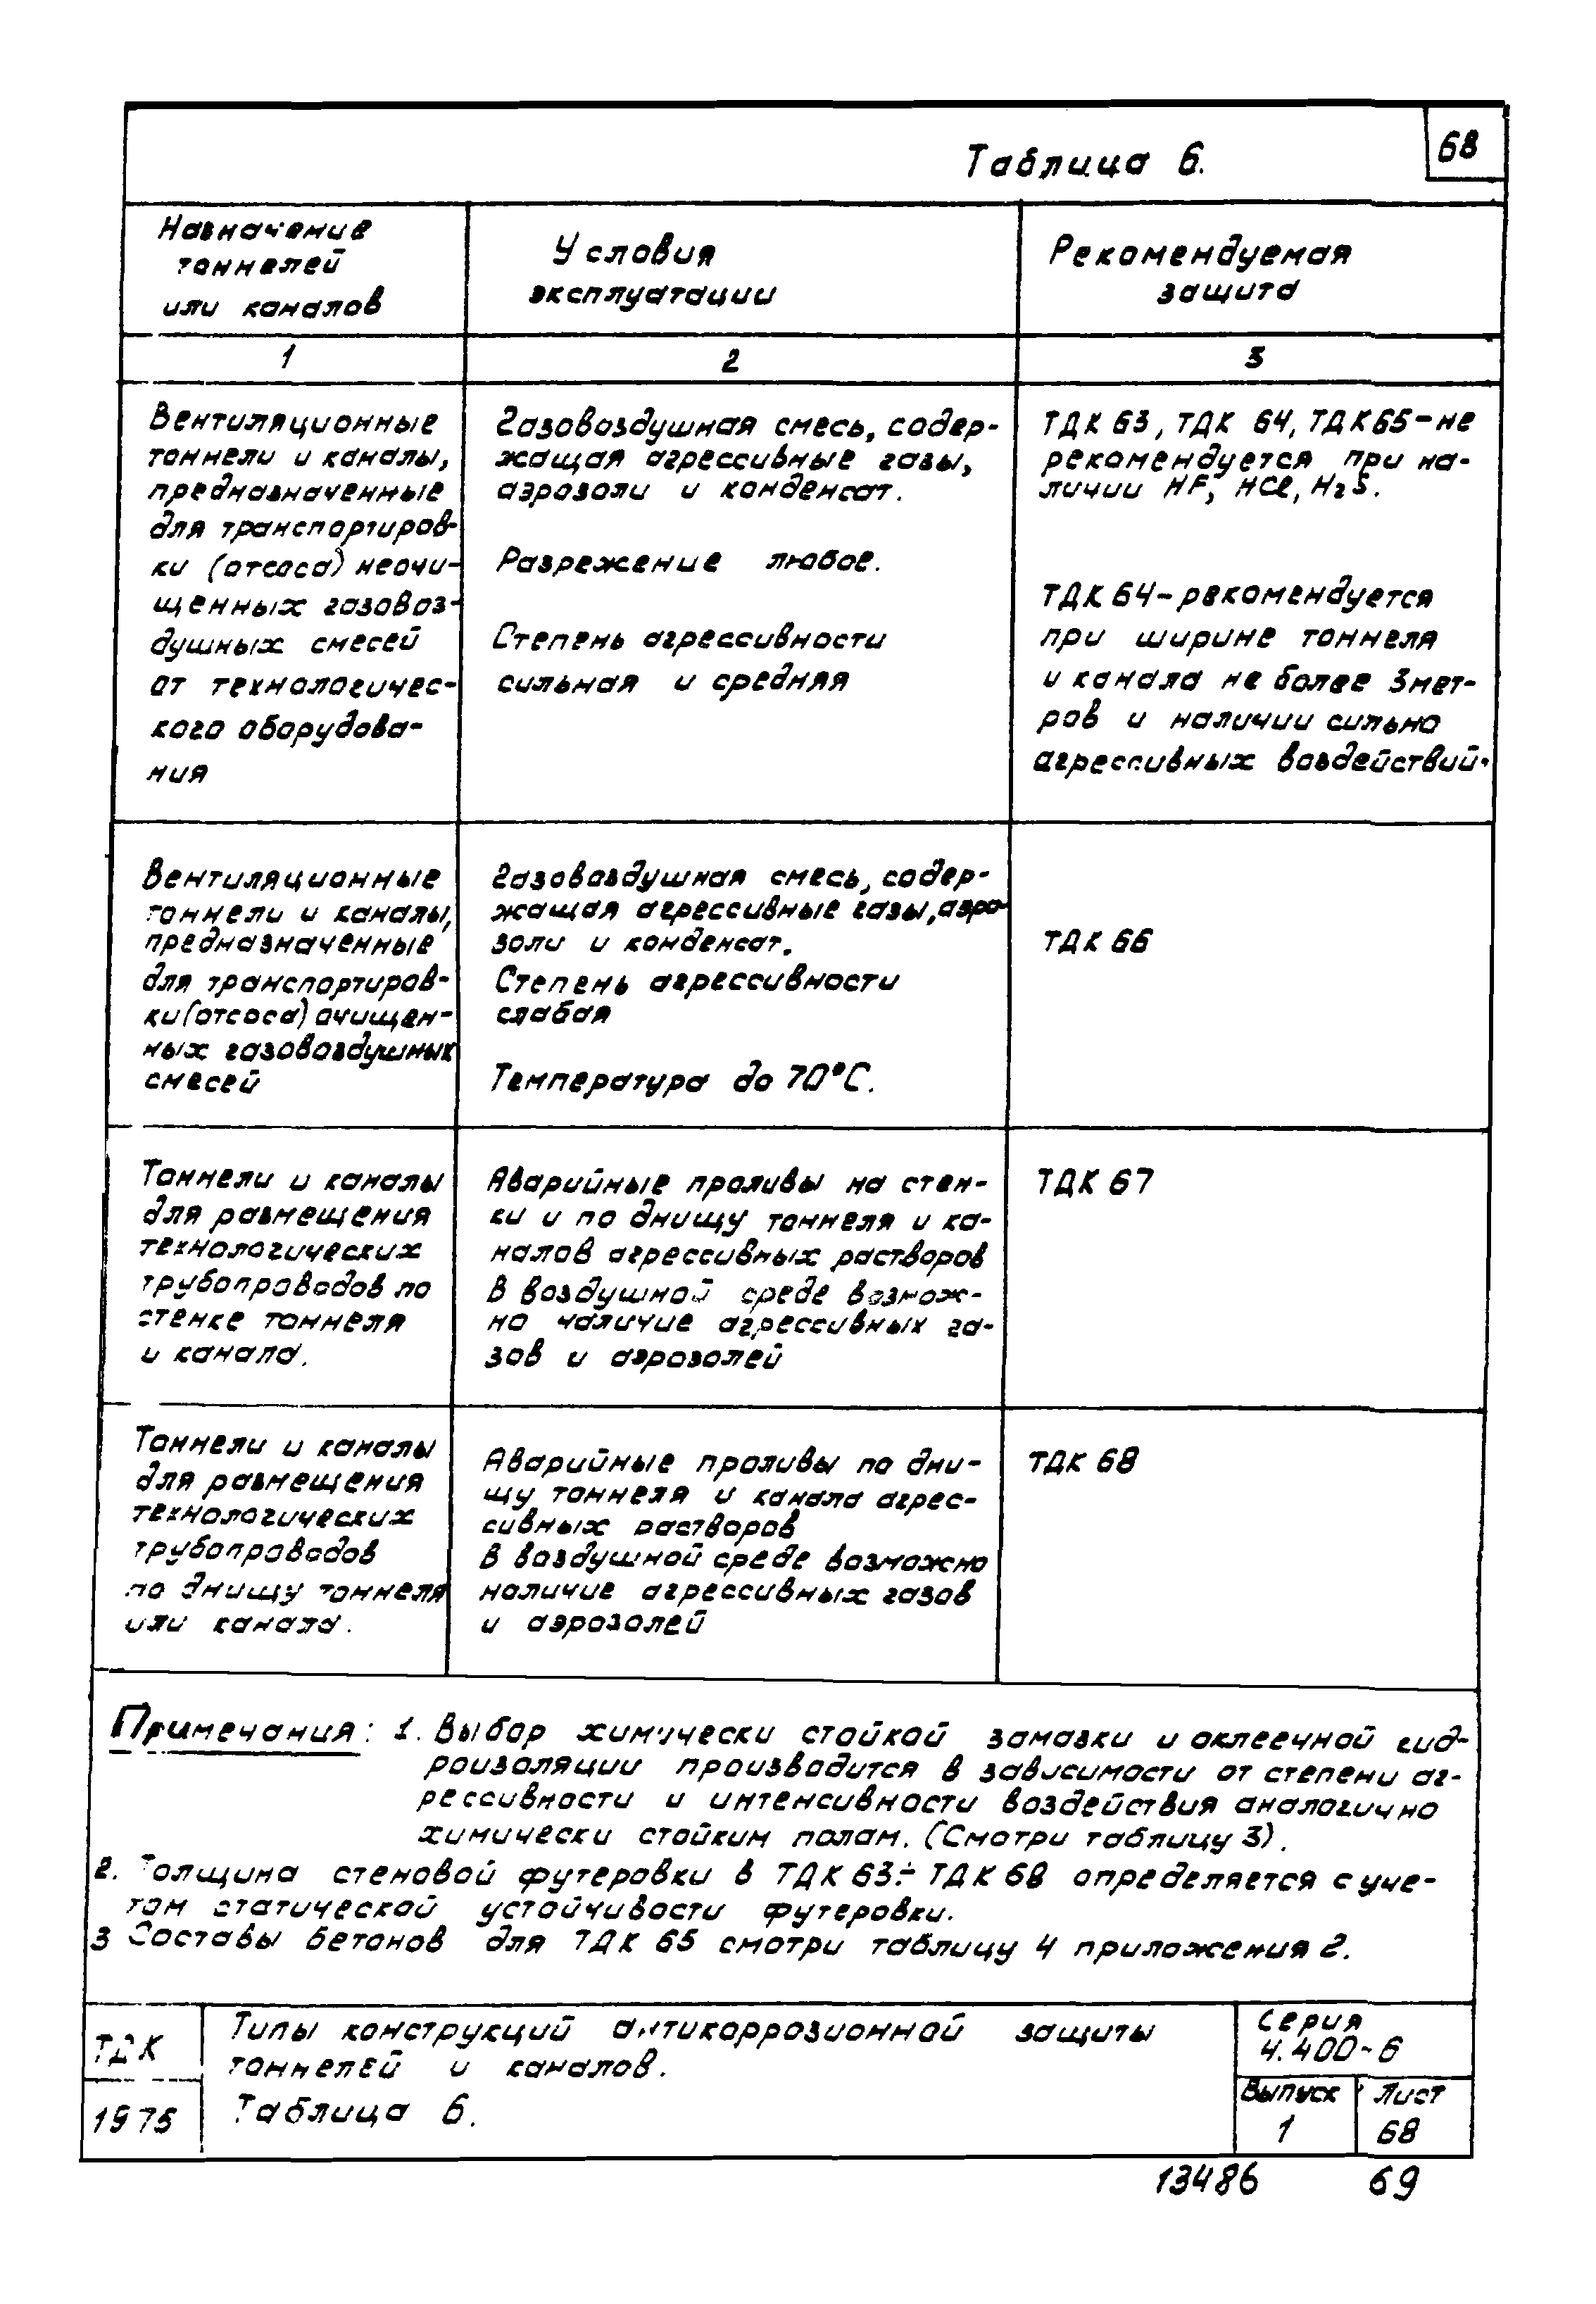 68
Таблица 6.
Назначение
тоннелей
или каналов
Условия
эксплуатации
Рекомендуемая
защита
1
2
3
Вентиляционные
тоннели и каналы,
предназначенные
для транспортиров-
ки (отсоса) неочи-
щенных газовоз-
душных смесей
от технологичес-
кого оборудова-
ния
Газовоздушная смесь, содер-
жащая агрессивные газы,
аэрозоли и конденсат.
Разрежение любое.
Степень агрессивности
сильная и средняя
ТДК 63, ТДК 64, ТДК 65 - не
рекомендуется при на-
личии HF, HCl, H2S.
ТДК 64 - рекомендуется
при ширине тоннеля
и канала не более 3 мет-
ров и наличии сильно
агрессивных воздействий.
Вентиляционные
тоннели и каналы,
предназначенные
для транспортиров-
ки (отсоса) очищен-
ных газовоздушных
смесей
Газовоздушная смесь, содер-
жащая агрессивные газы, аэро-
золи и конденсат.
Степень агрессивности
слабая
Температура до 70°С.
ТДК 66
Тоннели и каналы
для размещения
технологических
трубопроводов по
стенке тоннеля
и канала.
Аварийные проливы на стен-
ки и по днищу тоннеля и ка-
налов агрессивных растворов
В воздушной среде возмож-
но наличие агрессивных га-
зов и аэрозолей
ТДК 67
Тоннели и каналы
для размещения
технологических
трубопроводов
по днищу тоннеля
или канала.
Аварийные проливы по дни-
щу тоннеля и канала агрес-
сивных растворов
В воздушной среде возможно
наличие агрессивных газов
и аэрозолей
ТДК 68
Примечания: 1. Выбор химически стойкой замазки и оклеечной гид-
роизоляции производится в зависимости от степени аг-
рессивности и интенсивности воздействия аналогично
химически стойким полам. (Смотри таблицу 3).
2. Толщина стеновой футеровки в ТДК 63÷ТДК 68 определяется с уче-
том статической устойчивости футеровки.
3 Составы бетонов для ТДК 65 смотри таблицу 4 приложения 2.
ТДК
1975
Типы конструкций антикоррозионной защиты
тоннелей и каналов.
Таблица 6.
Серия
4.400-6
Выпуск
1
Лист
68
13486 69